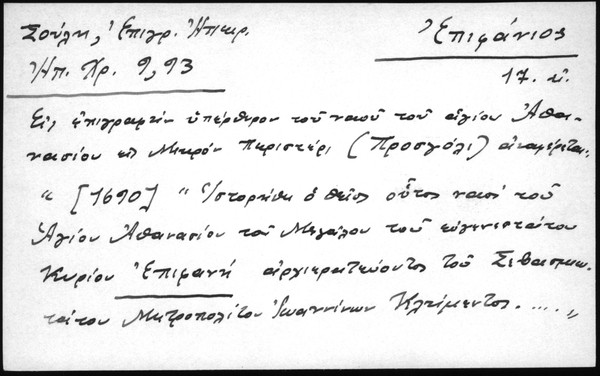 Σούλη, Ἐπιγρ. Ἠπειρ.
Ἠπ. Χρ. 9, 93
Ἐπιφάνιος
17. αἰ.
Εἰς ἐπιγραφὴν ὑπέρθυρον τοῦ ναοῦ τοῦ ἁγίου Ἀθα-
νασίου εἰς Μικρὸν Περιστέρι (Προσγόλι) ἀναφέρεται.
" [1690] " Ἱστορήθη ὁ θεῖος οὗτος ναὸς τοῦ
Ἁγίου Ἀθανασίου τοῦ Μεγάλου τοῦ εὐγενεστάτου
Κυρίου Ἐπιφανῆ ἀρχιερατεύοντος τοῦ Σεβασμιω-
τάτου Μητροπολίτου Ἰωαννίνων Κλήμεντος. .... "